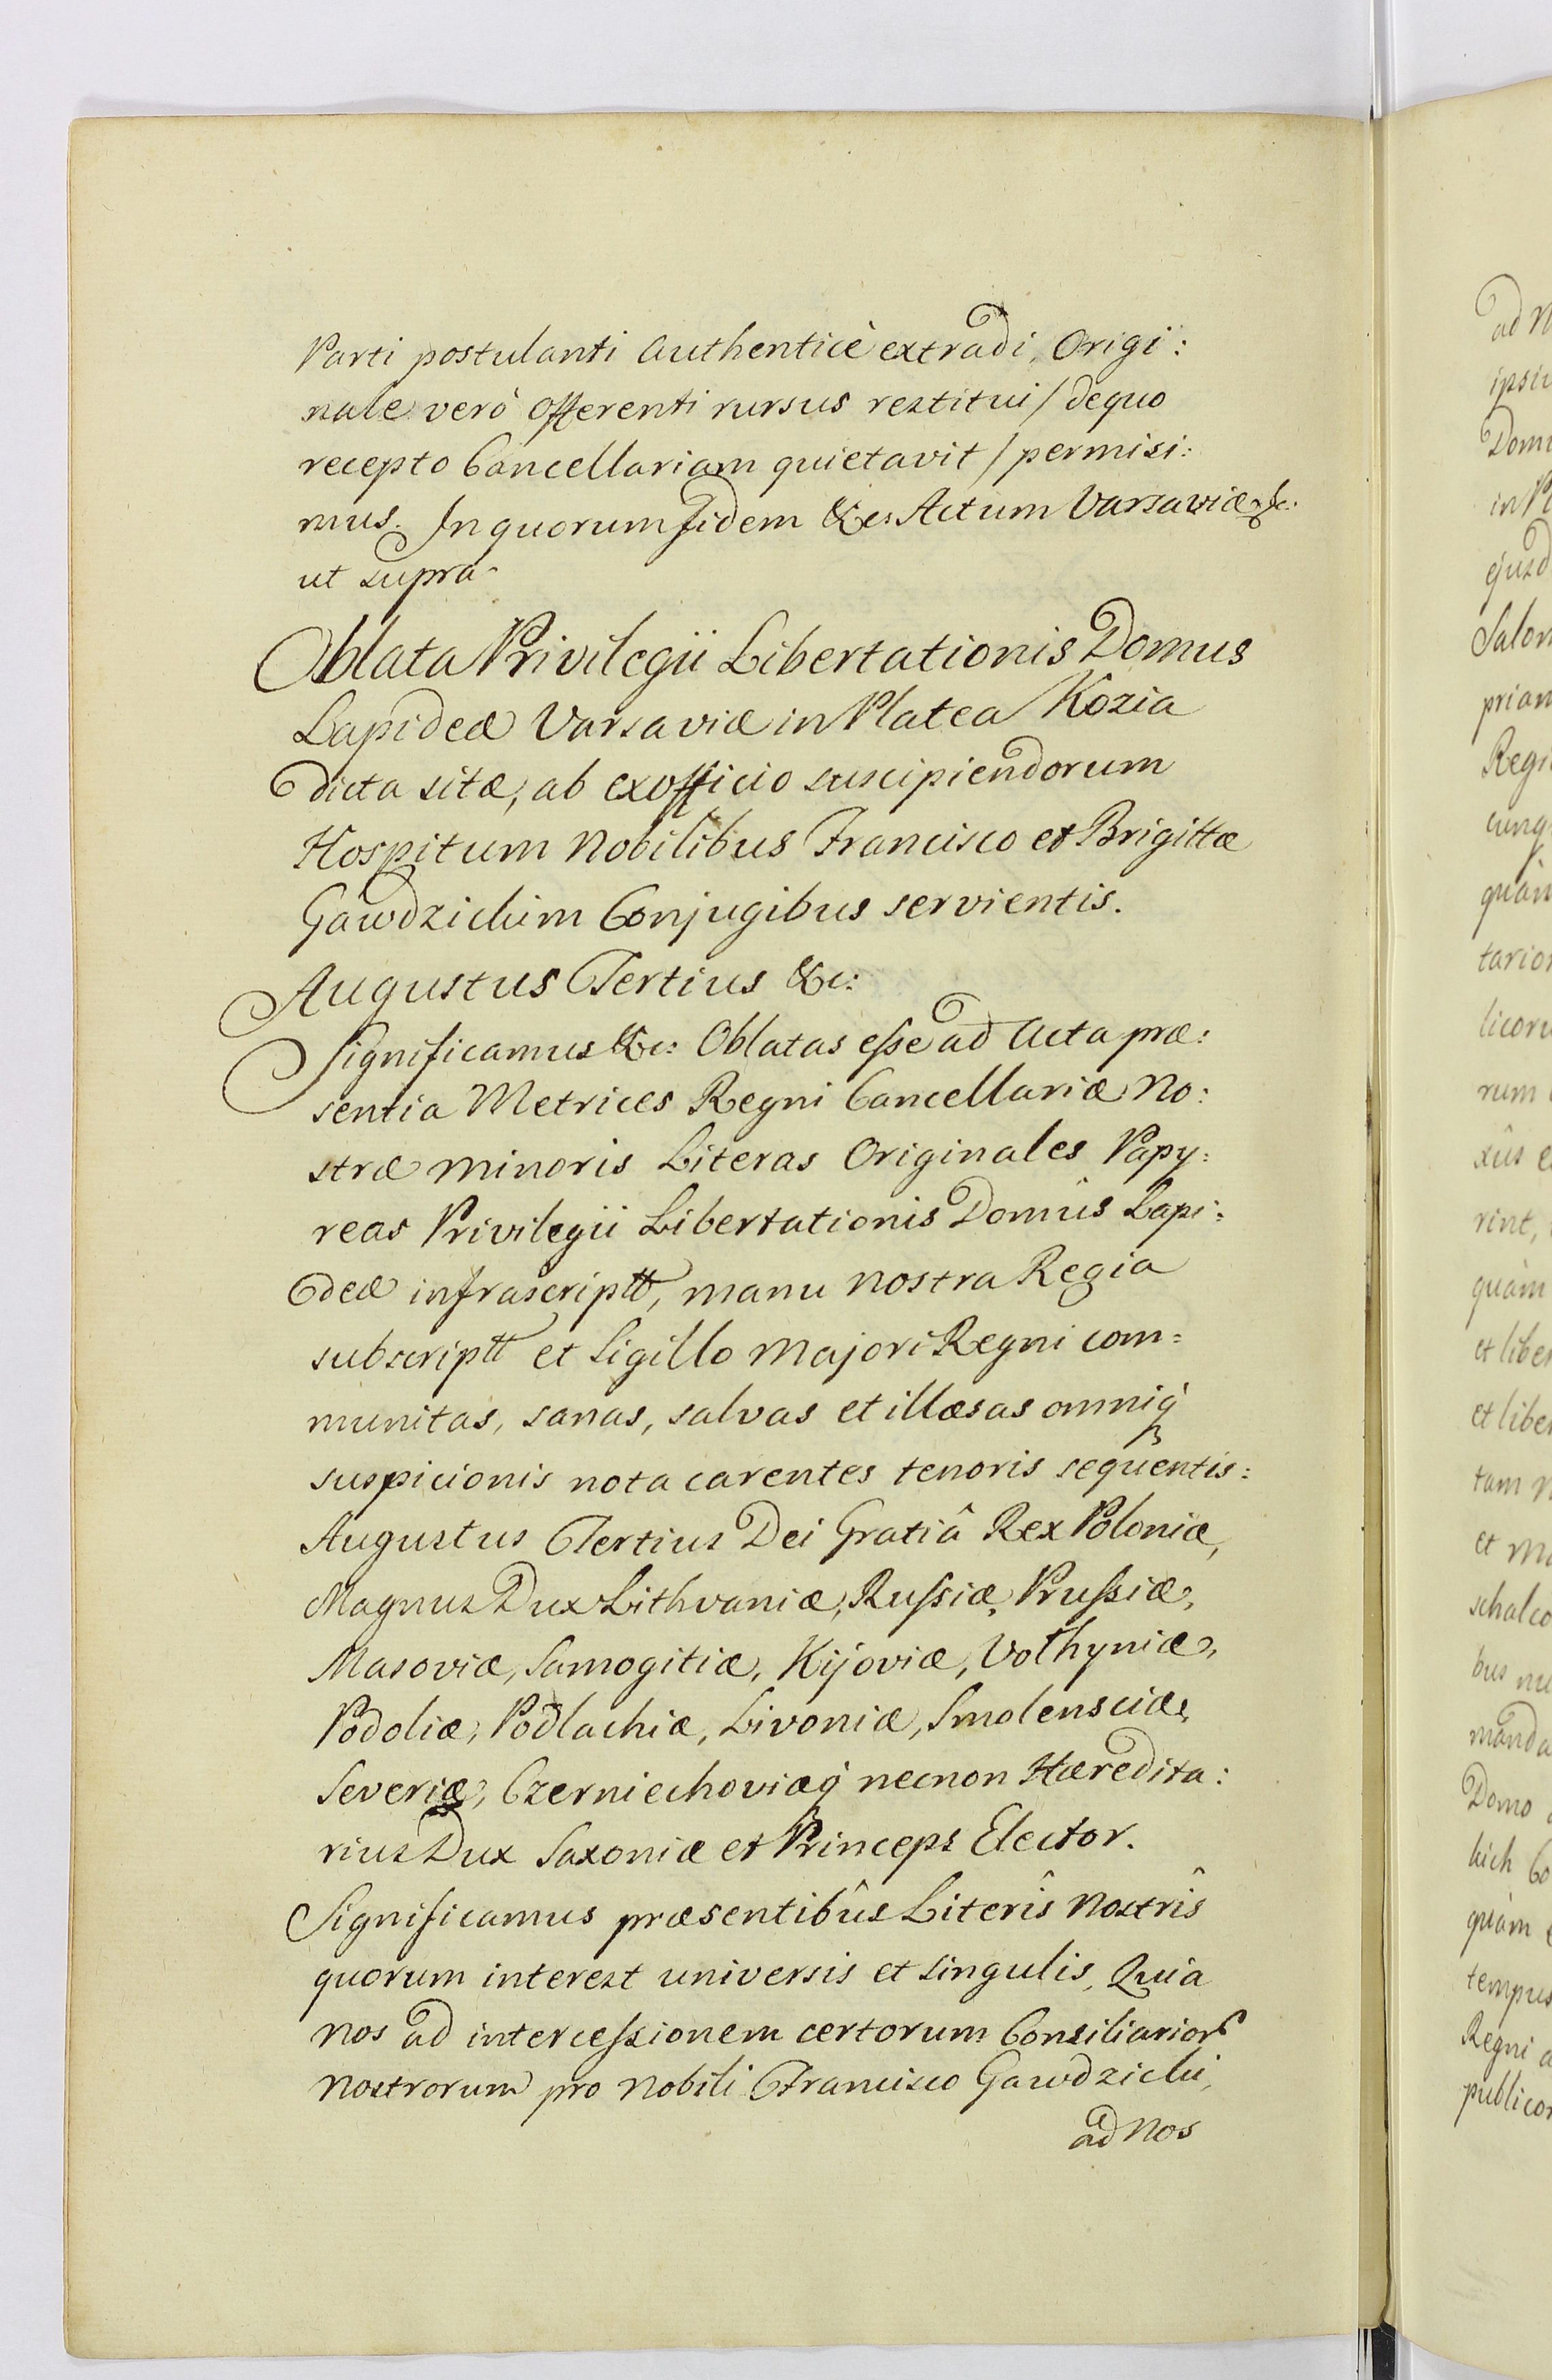 Parti postulanti authenticè extradi, Origi:
nale verò offerenti rursus restitui / dequo
recepto Cancellariam quietavit / permisi:
mus. In quorum fidem &c: Actum Varsaviæ &c:
ut supra
Oblata Privilegii Libertationis Domus
Lapideæ Varsaviæ in Platea Kozia
dicta sitæ, ab exofficio suscipiendorum
Hospitum Nobilibus Francisco et Brigittæ
Gawdzickim Conjugibus servientis.
Augustus Tertius &c:
Significamus &c: Oblatas eſse ad Acta præ:
sentia Metrices Regni Cancellariæ No:
stræ minoris Literas Originales Papy:
reas Privilegii Libertationis Domûs Lapi:
deæ infrascriptt, manu nostra Regia
subscriptt et Sigillo Majori Regni com:
munitas, sanas, salvas et illæsas omniq́
suspicionis nota carentes tenoris sequentis:
Augustus Tertius Dei Gratiâ Rex Poloniæ,
Magnus Dux Lithvaniæ, Ruſsiæ, Pruſsiæ,
Masoviæ, Samogitiæ, Kijoviæ, Volhyniæ,
Podoliæ, Podlachiæ, Livoniæ, Smolensciæ,
Severiæ, Czerniechoviæq́ necnon Hæredita:
rius Dux Saxoniæ et Princeps Elector.
Significamus præsentibûs Literîs Nostrîs
quorum interest universis et singulis, Quia
nos ad interceſsionem certorum Consiliarior
nostrorum pro Nobili Francisco Gawdzicki,
ad Nos
ad N
ipsiu
Dom
in Pl
ejusd
Salom
priam
Regi
cunq
quam
tarior
licoru
rum
xûs e
rint,
quàm
et liber
et liber
tam n
et Ma
schalco
bus nu
manda
Domo
kich Co
quàm
tempus
Regni a
publicor